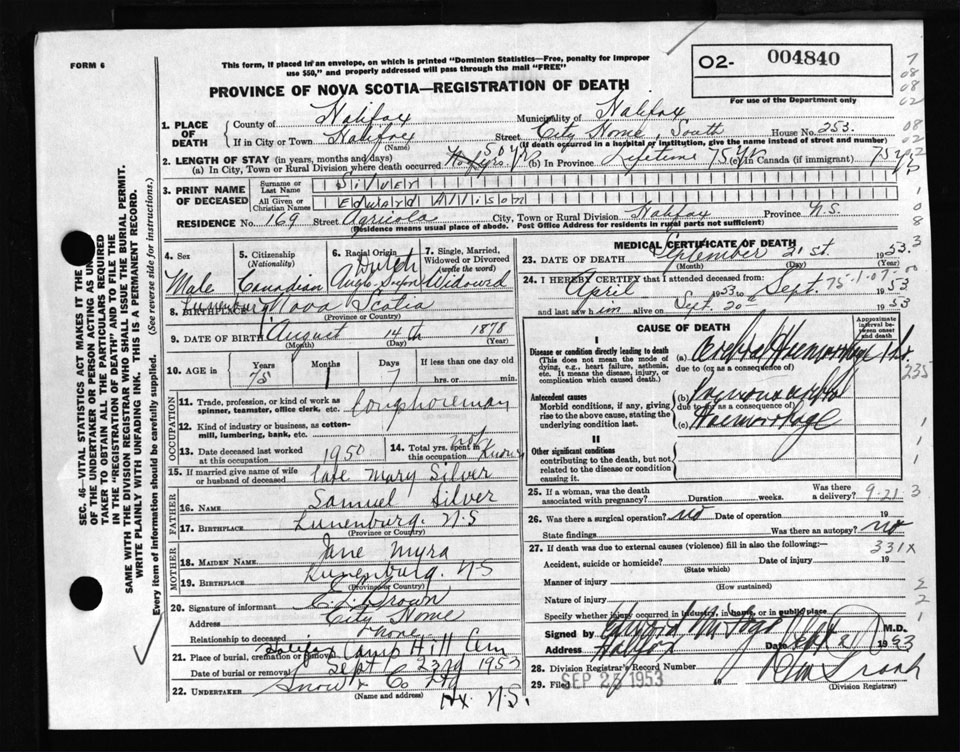 FORM 6
This form, if placed in an envelope, on which is printed "Dominion Statistics—Free, penalty for improper
use $50," and properly addressed will pass through the mail "FREE"
O2- 004840
For use of the Department only
PROVINCE OF NOVA SCOTIA—REGISTRATION OF DEATH
1. PLACE OF DEATH
County of Halifax Municipality of Halifax
If in City or Town Halifax Street City Home, South House No. 253.
(Name) (If death occurred in a hospital or institution, give the name instead of street and number)
2. LENGTH OF STAY (in years, months and days)
(a) In City, Town or Rural Division where death occurred 50 yrs (b) In Province Lifetime 75 Yr (c) In Canada (if immigrant) 75 yr
3. PRINT NAME OF DECEASED
Surname or Last Name Silver
All Given or Christian Names Edward Allison
RESIDENCE No. 169 Street Agricola City, Town or Rural Division Halifax Province N.S.
(Residence means usual place of abode. Post Office Address for residents in rural parts not sufficient)
4. Sex Male
5. Citizenship (Nationality) Canadian
6. Racial Origin Dutch Anglo-Saxon
7. Single, Married, Widowed or Divorced (write the word) Widowed
8. BIRTHPLACE Lunenburg Nova Scotia
(Province or Country)
9. DATE OF BIRTH August 14th 1878
(Month) (Day) (Year)
10. AGE in Years 75 Months 1 Days 7 If less than one day old hrs. or min.
OCCUPATION
11. Trade, profession, or kind of work as spinner, teamster, office clerk, etc. Longshoreman
12. Kind of industry or business, as cotton-mill, lumbering, bank, etc.
13. Date deceased last worked at this occupation 1950
14. Total yrs. spent in this occupation not known
15. If married give name of wife or husband of deceased late Mary Silver
FATHER
16. NAME Samuel Silver
17. BIRTHPLACE Lunenburg. N.S
(Province or Country)
MOTHER
18. MAIDEN NAME Jane Myra
19. BIRTHPLACE Lunenburg. N.S
(Province or Country)
20. Signature of informant E. J. Brown
Address City Home
Relationship to deceased None
21. Place of burial, cremation or removal Halifax Camp Hill Cem
Date of burial or removal Sept 23rd 1953
22. UNDERTAKER Snow & Co Ltd
(Name and address)
Hx. N.S.
MEDICAL CERTIFICATE OF DEATH
23. DATE OF DEATH September 21st. 1953
(Month) (Day) (Year)
24. I HEREBY CERTIFY that I attended deceased from:
April 1953 to Sept. 1953
75-1-07-00
and last saw him alive on Sept. 20th 1953
CAUSE OF DEATH
Approximate interval between onset and death
I
Disease or condition directly leading to death
(This does not mean the mode of dying, e.g., heart failure, asthenia, etc. It means the disease, injury, or complication which caused death.)
(a) Cerebral Haemorrhage
due to (or as a consequence of)
235
Antecedent causes
Morbid conditions, if any, giving rise to the above cause, stating the underlying condition last.
(b)
due to (or as a consequence of)
(c) Haemorrhage
II
Other significant conditions
contributing to the death, but not related to the disease or condition causing it.
25. If a woman, was the death associated with pregnancy? Duration weeks. Was there a delivery? 9-21 3
26. Was there a surgical operation? no Date of operation 19
State findings Was there an autopsy? no
27. If death was due to external causes (violence) fill in also the following:— 331X
Accident, suicide or homicide? Date of injury 19
(State which)
Manner of injury
(How sustained)
Nature of injury
Specify whether injury occurred in industry, in home, or in public place
Signed by M.D.
Address Halifax Date Sept 21 1953
28. Division Registrar's Record Number
29. Filed SEP 23 1953 19
(Division Registrar)
SEC. 46—VITAL STATISTICS ACT MAKES IT THE DUTY
OF THE UNDERTAKER OR PERSON ACTING AS UNDERTAKER
TAKER TO OBTAIN ALL THE PARTICULARS REQUIRED
IN THE "REGISTRATION OF DEATH" AND TO FILE THE
SAME WITH THE DIVISION REGISTRAR WHO SHALL ISSUE THE BURIAL PERMIT.
WRITE PLAINLY WITH UNFADING INK. THIS IS A PERMANENT RECORD.
Every item of information should be carefully supplied. (See reverse side for instructions.)